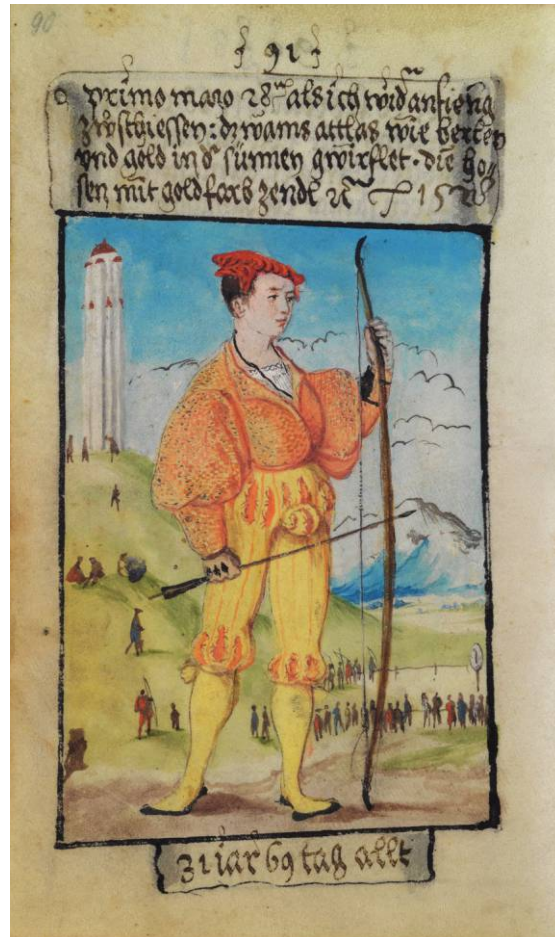 90
91
primo mayo 28 als ich wid anfieng
zů schiessen: dz wams attlas wie berlen
vnd gold in d' sunnen gwirflet. die ho-
sen mit goldfarb zendl 1528
31 iar 69 tag allt